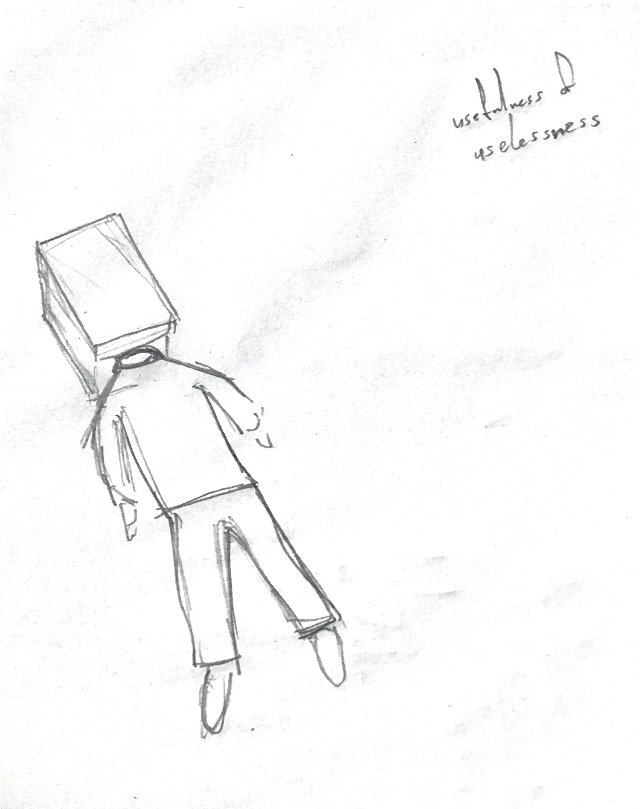 usefulness &
uselessness